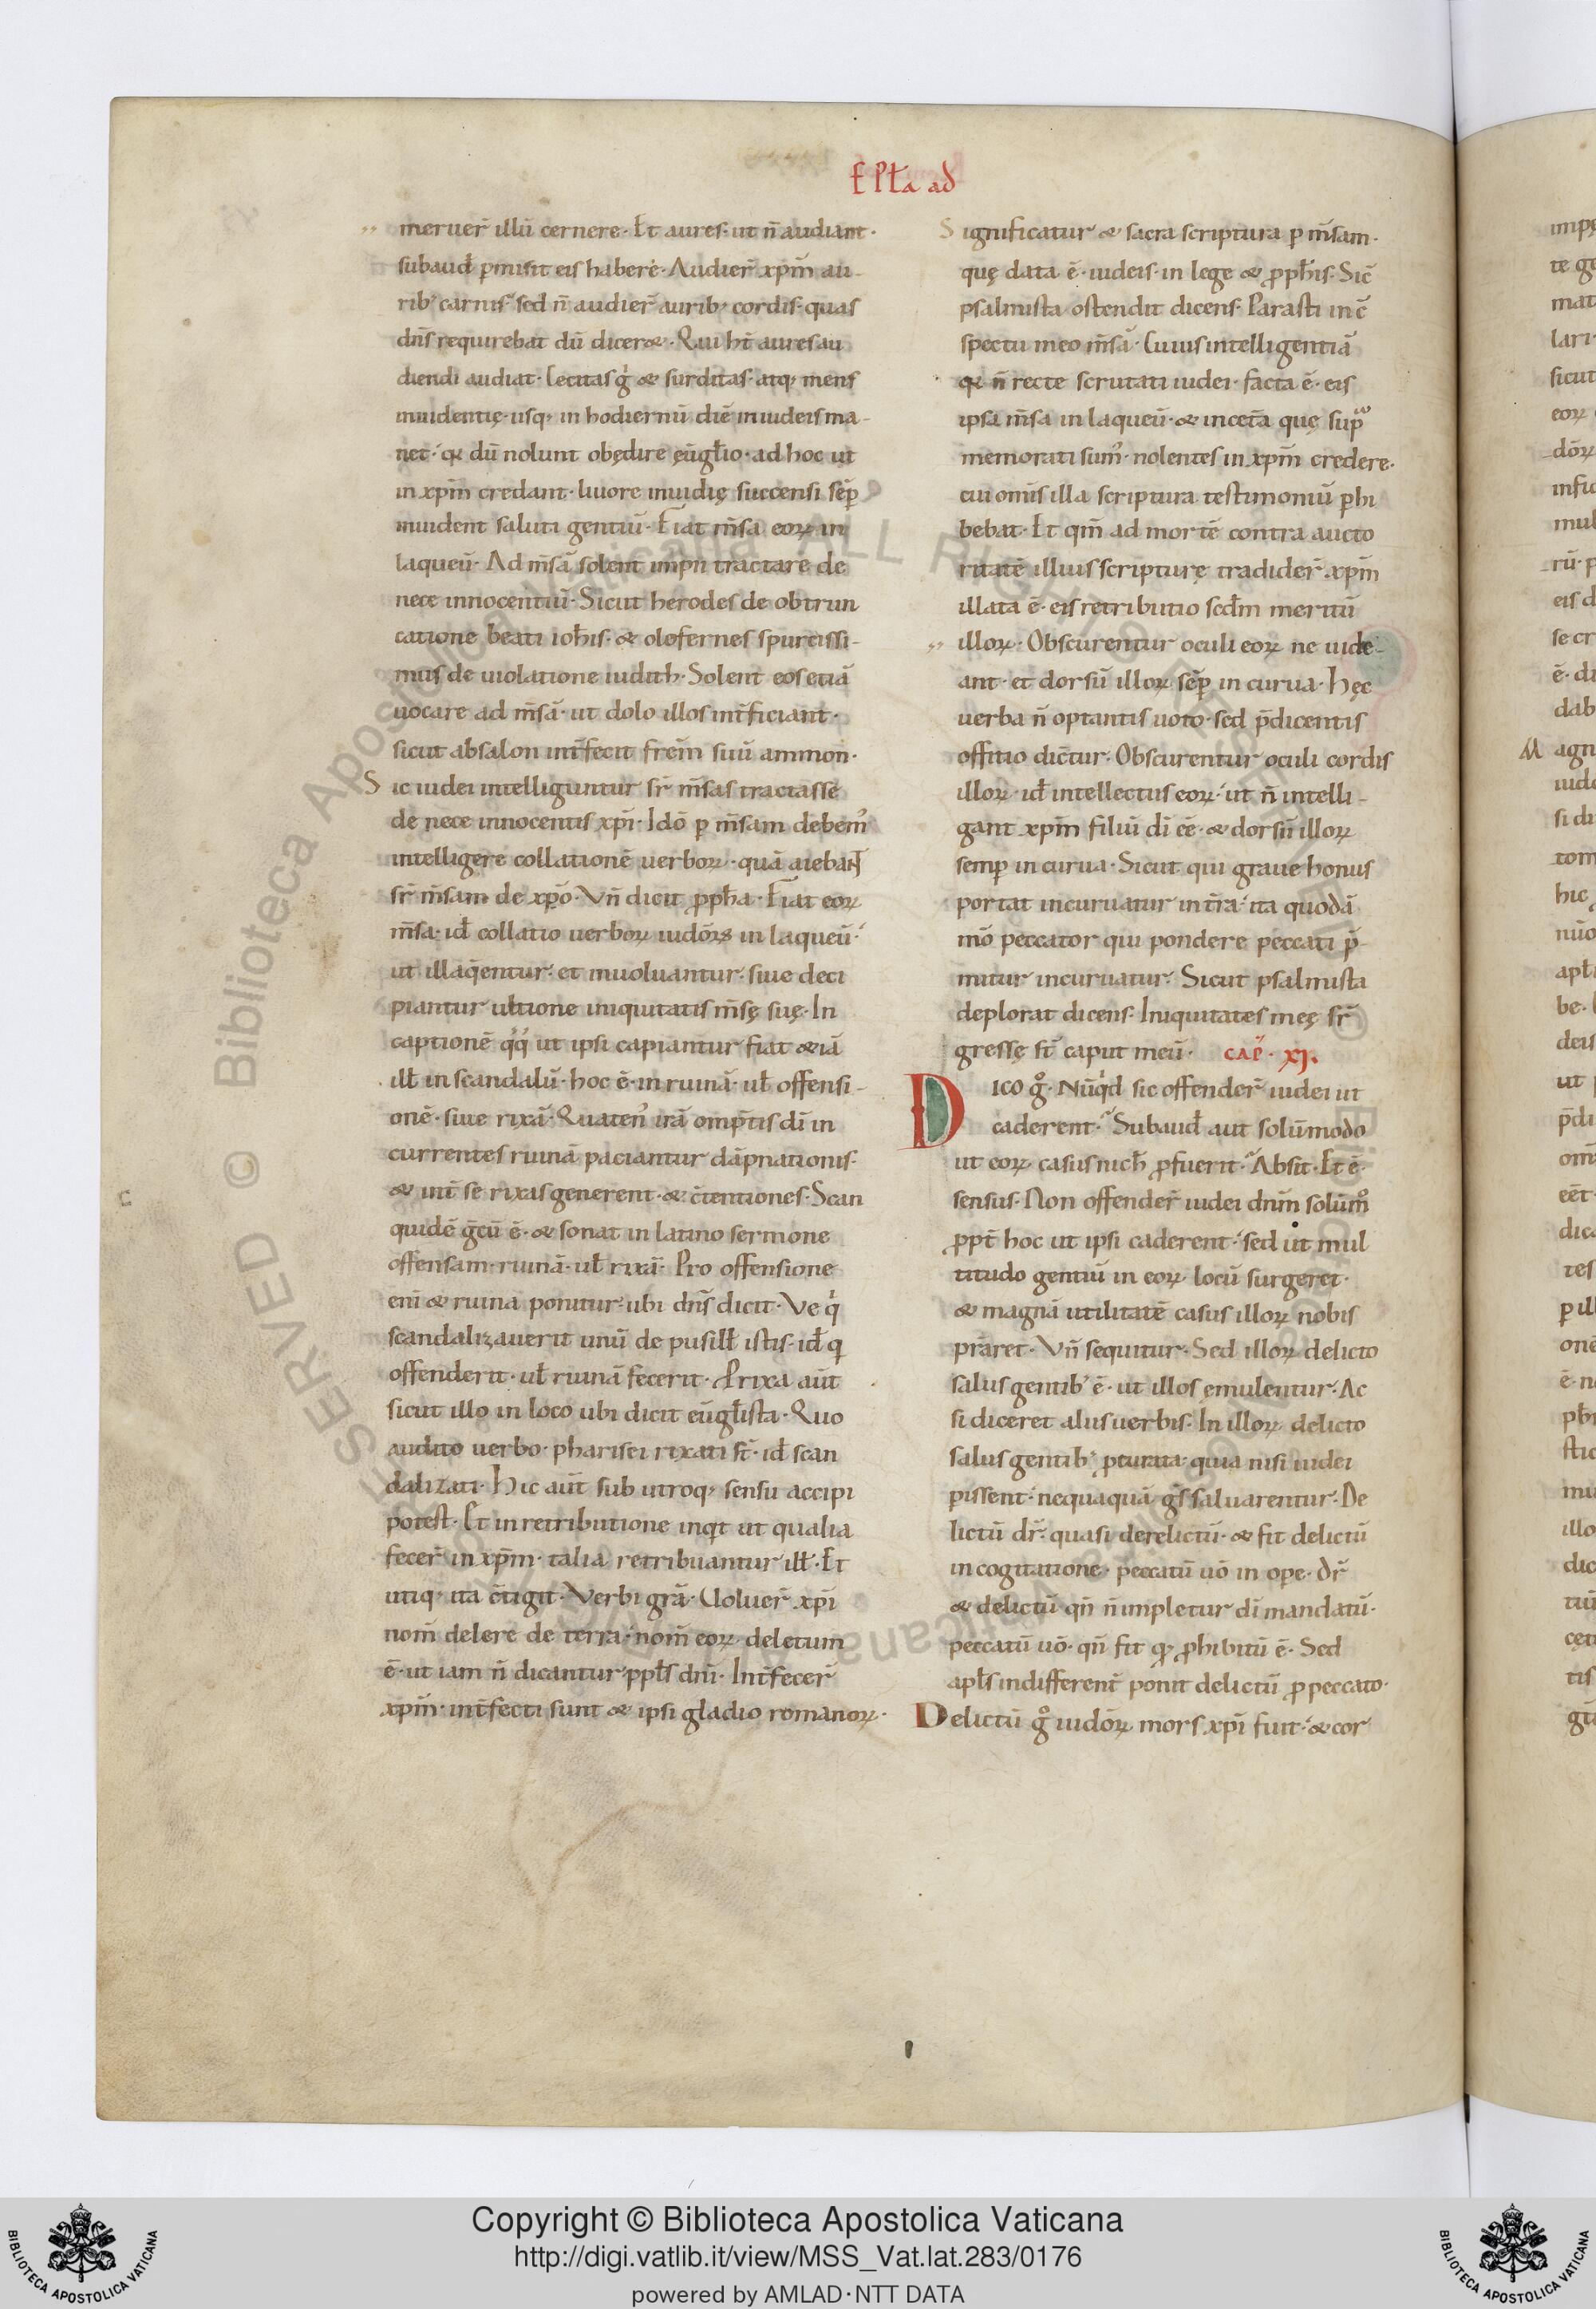 EPĿa ad
meruer̄ illū cernere· Et aures· ut n̄ audiant·
subaud̄ p̄misit eis habere· Audier̄ xp̄m au-
rib; carnis· sed n̄ audier̄ aurib; cordis· quas
dn̄s requirebat dū dicer&· Qui ht̄ aures au
diendi audiat· Cecitas ḡ & surditas· atq; mens
inuidentię· usq; in hodiernū diē in iudeis ma-
net· qꝛ dū nolunt obędire ęuḡlio· ad hoc ut
in xp̄m credant· liuore inuidię succensi sēp
inuident saluti gentiū· Fiat m̄sa eoꝝ in
laqueū· Ad m̄sā solent impii tractare de
nece innocentiū· Sicut herodes de obtrun
catione beati ioh̄is· & olofernes spurcissi-
mus de uiolatione iudith· Solent eos etiā
uocare ad m̄sā· ut dolo illos int̄ficiant·
sicut absalon int̄fecit frēm suū ammon·
Sic iudei intelliguntur sr̄ m̄sas tractasse
de nece innocentis xp̄i· Idō p m̄sam debem᾽
intelligere collationē uerboꝝ· quā aiebant
sr̄ m̄sam de xp̄o· Vn̄ dicit ꝓph̄a· Fiat eoꝝ
m̄sa· id̄ collatio uerboꝝ iudōꝝ in laqueū·
ut illaq̄entur· et inuoluantur· siue deci
piantur ultione iniquitatis m̄sę suę· In
captionē q̊q̊ ut ipsi capiantur fiat &iā
ill̄ in scandalū· hoc ē· in ruinā· ul̄ offensi-
onē· siue rixā· Quaten᾽ irā omp̄tis dī in
currentes ruinā paciantur dāpnationis·
& int̄ se rixas generent· & c̄tentiones· Scan
quidē ḡcū ē· & sonat in latino sermone
offensam· ruinā· ul̄ rixā· Pro offensione
enī & ruina ponitur· ubi dn̄s dicit· Ve q̇
scandalizauerit unū de pusill̄ istis· id̄ q
offenderit· ul̄ ruinā fecerit· P rixa aūt
sicut illo in loco ubi dicit eūgl̄ista· Quo
audito uerbo· pharisei rixati st̄· id̄ scan
dalizati· Hic aūt sub utroq; sensu accipi
potest· Et in retributione inqt ut qualia
fecer̄ in xp̄m· talia retribuantur ill̄· Et
utiq; ita c̄tigit· Verbi grā· Voluer̄ xp̄i
nom̄ delere de terra· nom̄ eoꝝ deletum
ē· ut iam n̄ dicantur ppl̄s dn̄i· Int̄fecer̄
xp̄m· int̄fecti sunt & ipsi gladio romanoꝝ·
Significatur & sacra scriptura p m̄sam·
quę data ē· iudeis· in lege & ꝓph̄is· Sic̄
psalmista ostendit dicens· Parasti in c̄
spectu meo m̄sā· Cuius intelligentiā
qꝛ n̄ recte scrutati iudei· facta ē· eis
ipsa m̄sa in laqueū· & in cet̄a quę sup
memorati sum᾽· nolentes in xp̄m credere·
cui om̄is illa scriptura testimoniū phi
bebat· Et qm̄ ad mortē contra aucto
ritatē illius scripturę tradider̄ xp̄m
illata ē· eis retributio scd̄m meritū
illoꝝ· Obscurentur oculi eoꝝ ne uide-
ant· et dorsū illoꝝ sēp in curua· Hęc
uerba n̄ optantis uoto· sed p̄dicentis
offitio dic̄tur· Obscurentur oculi cordis
illoꝝ· id̄ intellectus eoꝝ· ut n̄ intelli-
gant xp̄m filiū dī ēē· & dorsū illoꝝ
semp in curua· Sicut qui graue honus
portat incuruatur in t̄ra· ita quodā
mō peccator qui pondere peccati p̄-
mitur incuruatur· Sicut psalmista
deplorat dicens· Iniquitates meę sr̄
gressę st̄ caput meū· CAP̄· XI·
DICO g̊· Nūq̇d sic offender̄ iudei ut
caderent· Subaud̄ aut solūmodo
ut eoꝝ casus nich̄ ꝓfuerit· Absit· Et ē·
sensus· Non offender̄ iudei dn̄m solūm̊
ꝓpt̄ hoc ut ipsi caderent· sed ut mul
titudo gentiū in eoꝝ locū surgeret·
& magnā utilitatē casus illoꝝ nobis
pr̄aret· Vn̄ sequitur· Sed illoꝝ delicto
salus gentib; ē· ut illos ęmulentur· Ac
si diceret aliis uerbis· In illoꝝ delicto
salus gentib; ꝓcurata· quia nisi iudei
pissent· nequaquā gs̄ saluarentur· De
lictū dr̄· quasi derelictū· & fit delictū
in cogitatione· peccatū uō in ope· dr̄
& delictū qn̄ n̄ impletur dī mandatū·
peccatū uō· qn̄ fit qꝫ ꝓhibitū ē· Sed
apl̄s indifferent̄ ponit delictū ꝓ peccato·
Delictū g̊ iudōꝝ mors xp̄i fuit· & cor
Copyright © Biblioteca Apostolica Vaticana
http://digi.vatlib.it/view/MSS_Vat.lat.283/0176
powered by AMLAD·NTT DATA
BIBLIOTECA APOSTOLICA VATICANA
BIBLIOTECA APOSTOLICA VATICANA